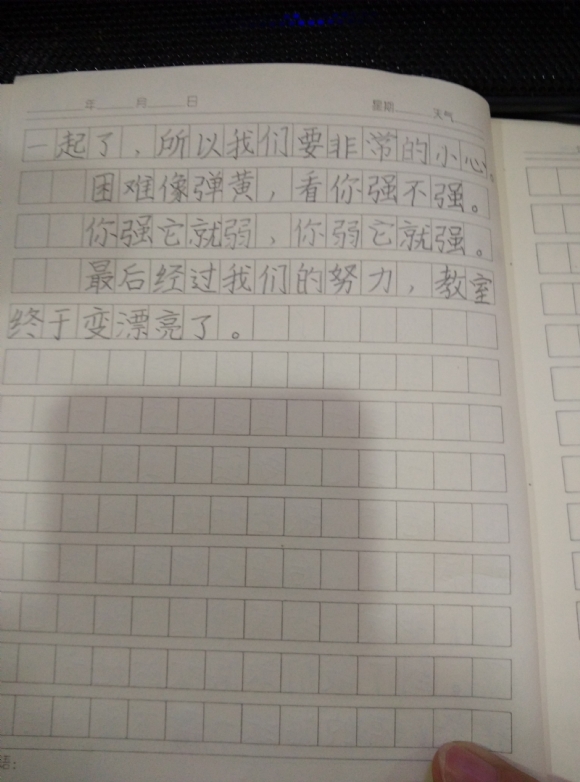 年 月 日 星期 天气
一起了，所以我们要非常的小心。
困难像弹黄，看你强不强。
你强它就弱，你弱它就强。
最后经过我们的努力，教室
终于变漂亮了。
语：